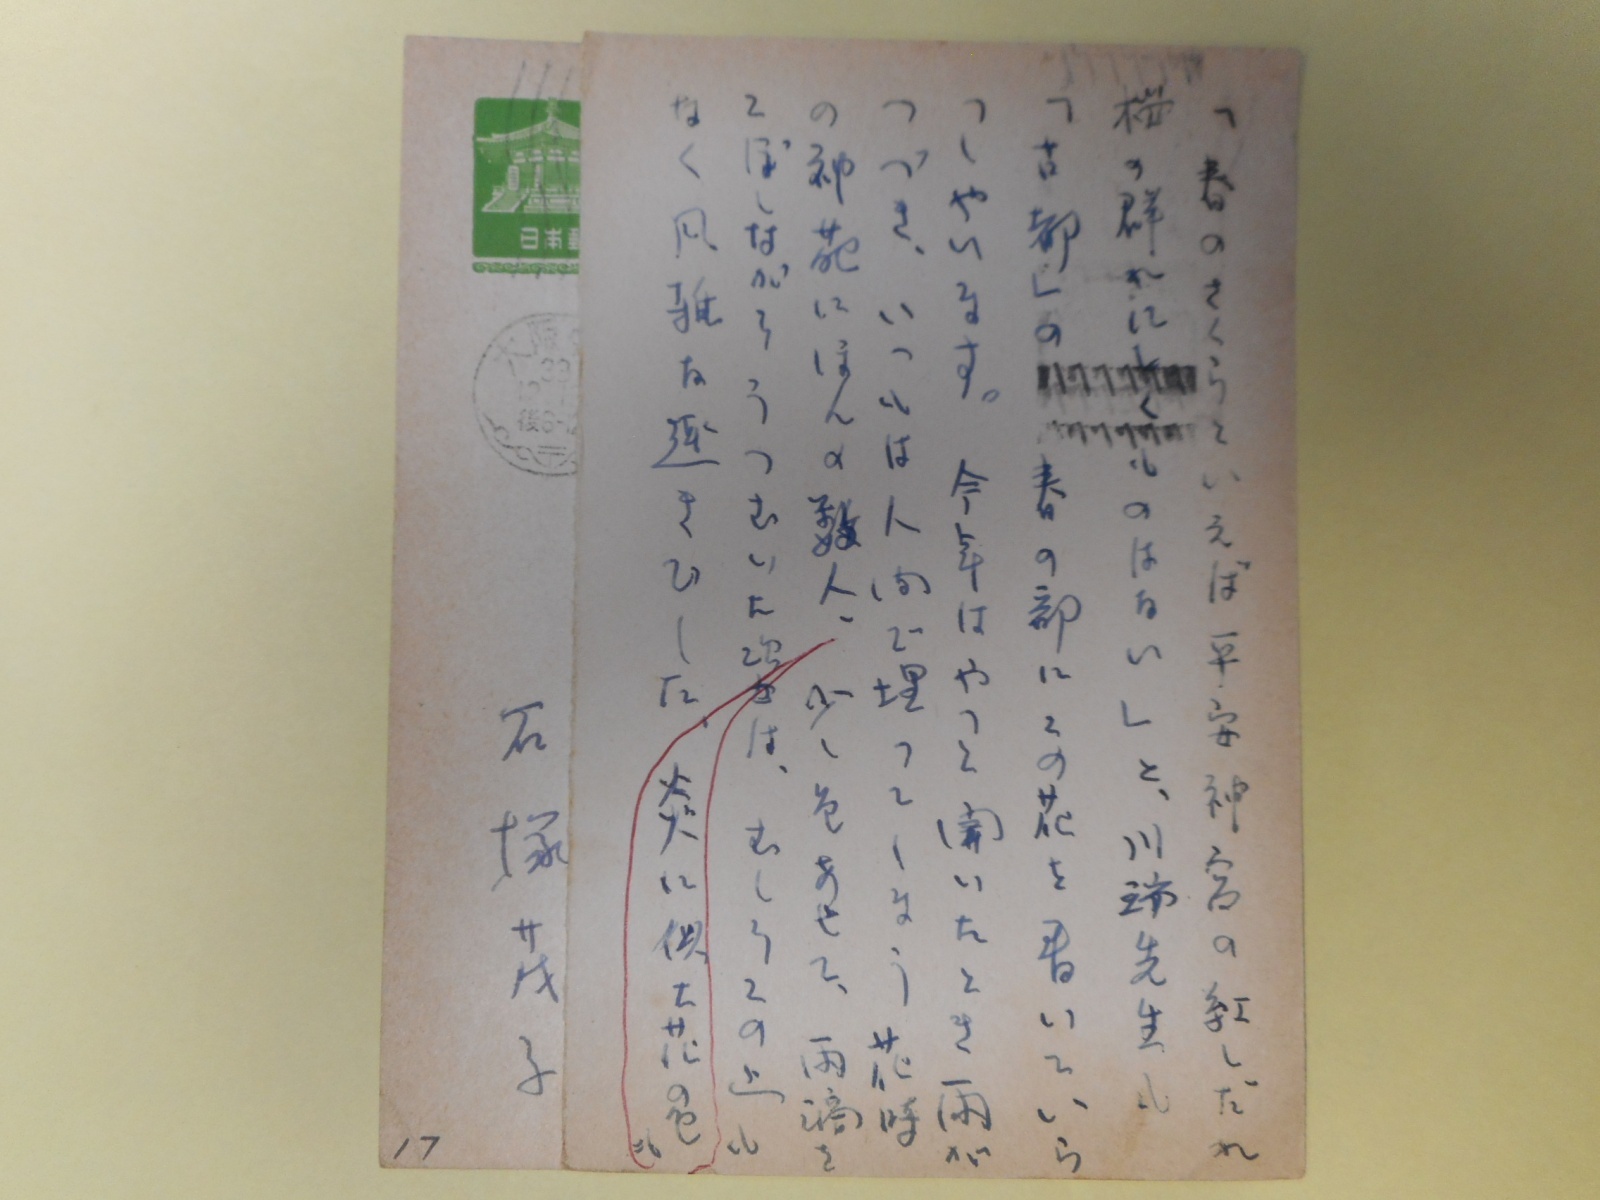 「春のさくらといえば平安神宮の紅しだれ
桜の群れにしくものはない」と、川端先生も
「古都」の春の部にこの花を書いていら
つしやいます。今年はやつと開いたとき雨が
つづき、いつもは人間で埋つてしまう花時
の神苑にほんの数人、少し色あせて、雨滴を
こぼしながらうつむいた姿は、むしろこの上も
なく風雅な逢きひした、炎に似た花の色も
日本郵
大阪
後6-12
石塚茂子
17